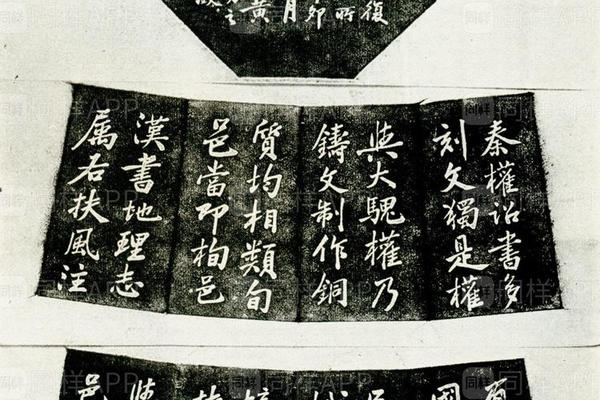 復
時
卯
月
黃
秦權詔書多
刻文獨是權
與大騩權乃
鑄文制作銅
質均相類旬
邑當即栒邑
漢書地理志
属右扶風注
邑
同样APP